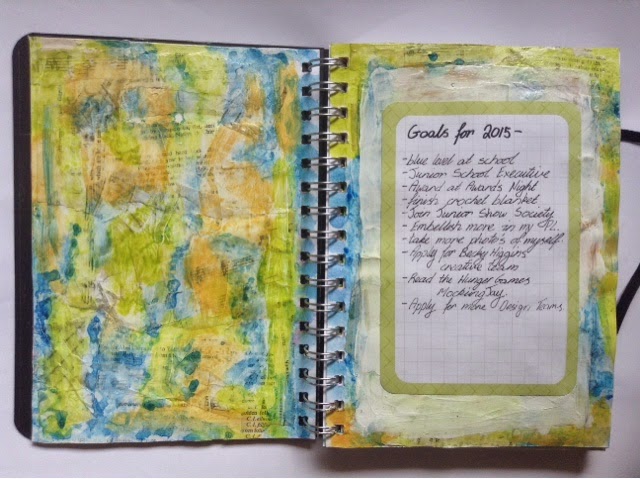 Goals for 2015-
-blue level at school
-Junior School Executive
-Award at Awards Night
-finish crochet blanket
-Join Junior Show Society
-Embellish more in my PL.
-take more photos of myself.
-Apply for Becky Higgins
creative team
-Read the Hunger Games
Mockingjay.
-Apply for more Design Teams